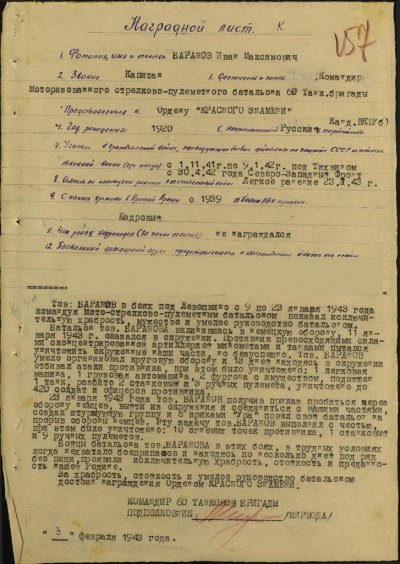 Наградной лист. К
157
1. Фамилия, имя и отчество БАРАНОВ Иван Максимович
2. Звание Капитан 3. Должность и часть Командир
Моторизованного стрелково-пулеметного батальона 60 Танк.бригады
Представляется к Ордену "КРАСНОГО ЗНАМЕНИ"
4. Год рождения 1920 5. Национальность Русский Канд.ВКП(б)
7. Участие в гражданской войне, последующих боевых действиях по защите СССР и отече-
ственной войне (где, когда) с 1.11.41г. по 9.1.42г. под Тихвином
с 30.4.42 года Северо-Западный Фронт
8. Имеет ли ранения в отечественной войне Легкое ранение 23.1.43 г.
9. С какого времени в Красной Армии с 1939
Кадровые
11. Чем ранее награжден (за какие отличия) не награждался
12. Постоянный домашний адрес
Тов. БАРАНОВ в боях под Левошкино с 9 по 23 января 1943 года
командуя Мото-стрелково-пулеметным батальоном показал исключи-
тельную храбрость, мужество и умелое руководство батальоном.
Батальон тов. БАРАНОВА вклинившись в немецкую оборону, 11 ян-
варя 1943 г. оказался в окружении. Противник превосходящими сила-
ми сконцентрированной артиллерией минометами и танками пытался
уничтожить окруженные наши части, но безуспешно. Тов. БАРАНОВ
умело организовал круговую оборону и 13 дней находясь в окружении
отбивал атаки противника, при этом было уничтожено: 1 легковая
машина, 1 грузовая автомашина, 2 фургона с имуществом, подожжен
1 танк, разбито 2 станковых и 3 ручных пулемета, уничтожено до
420 солдат и офицеров противника.
23 января 1943 года тов. БАРАНОВ получив приказ пробиться через
оборону немцев, выйти из окружения и соединиться с нашими частями,
создал штурмовую группу и с криками "Ура" повел свой батальон на
прорыв обороны немцев. Эту задачу тов. БАРАНОВ выполнил с честью,
при этом было уничтожено: 10 огневых точек противника, 1 станковый
и 9 ручных пулеметов.
Бойцы батальона тов. БАРАНОВА в этих боях, в трудных условиях
когда нехватало боеприпасов и находясь по несколько дней под ряд
без пищи, проявили исключительную храбрость, стойкость и преданно-
сть нашей Родине.
За храбрость, стойкость и умелое руководство батальоном
достоин награждения Орденом КРАСНОГО ЗНАМЕНИ.
КОМАНДИР 60 ТАНКОВОЙ БРИГАДЫ
ПОДПОЛКОВНИК /МИРВОДА/
" 3 " февраля 1943 года.